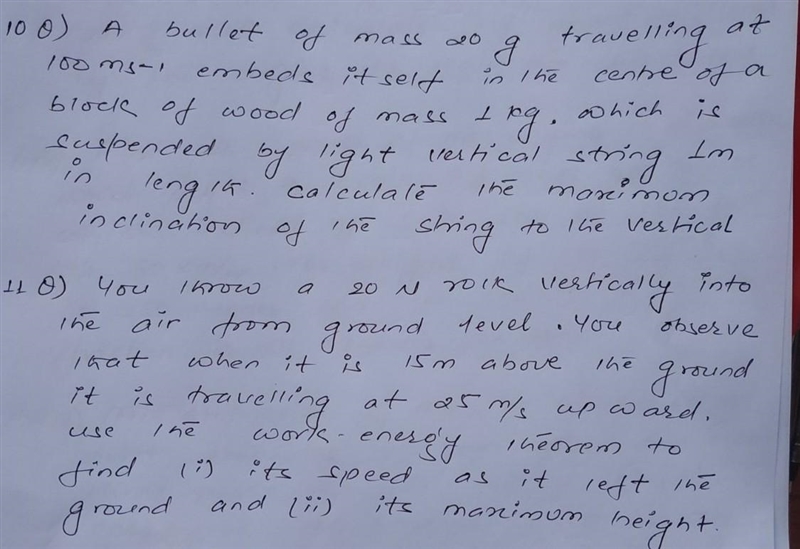 10 Q) A bullet of mass 20 g travelling at
100 ms-1 embeds itself in the centre of a
block of wood of mass 1 kg. which is
suspended by light vertical string 1m
in length. calculate the maximum
inclination of the string to the vertical
11 Q) You throw a 20 N rock vertically into
the air from ground level. You observe
that when it is 15m above the ground
it is travelling at 25 m/s upward.
use the work-energy theorem to
find (i) its speed as it left the
ground and (ii) its maximum height.